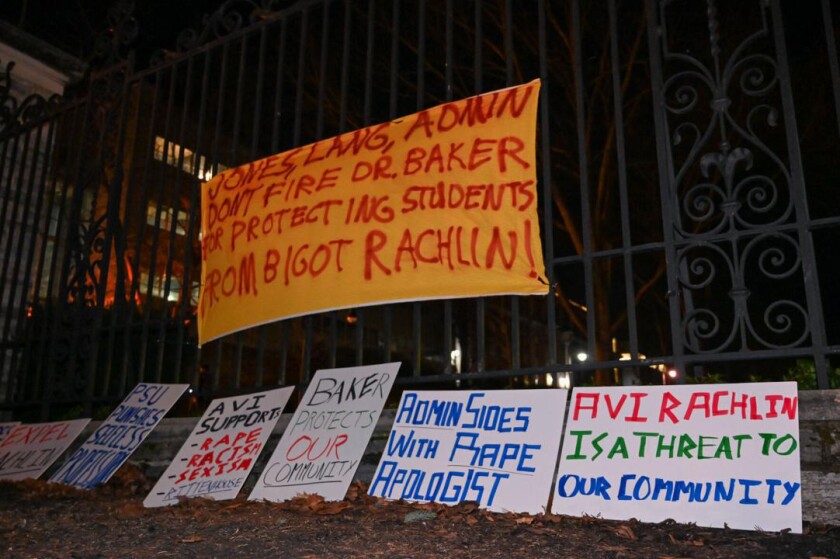 JONES, LANG, ADMIN
DONT FIRE DR. BAKER
FOR PROTECTING STUDENTS
FROM BIGOT RACHLIN!
EXPEL
PSU
PUNISHES
AVI
SUPPORTS
- RAPE
- RACISM
- SEXISM
- RITTENHOUSE
BAKER
PROTECTS
OUR
COMMUNITY
ADMIN SIDES
WITH RAPE
APOLOGIST
AVI RACHLIN
IS A THREAT TO
OUR COMMUNITY